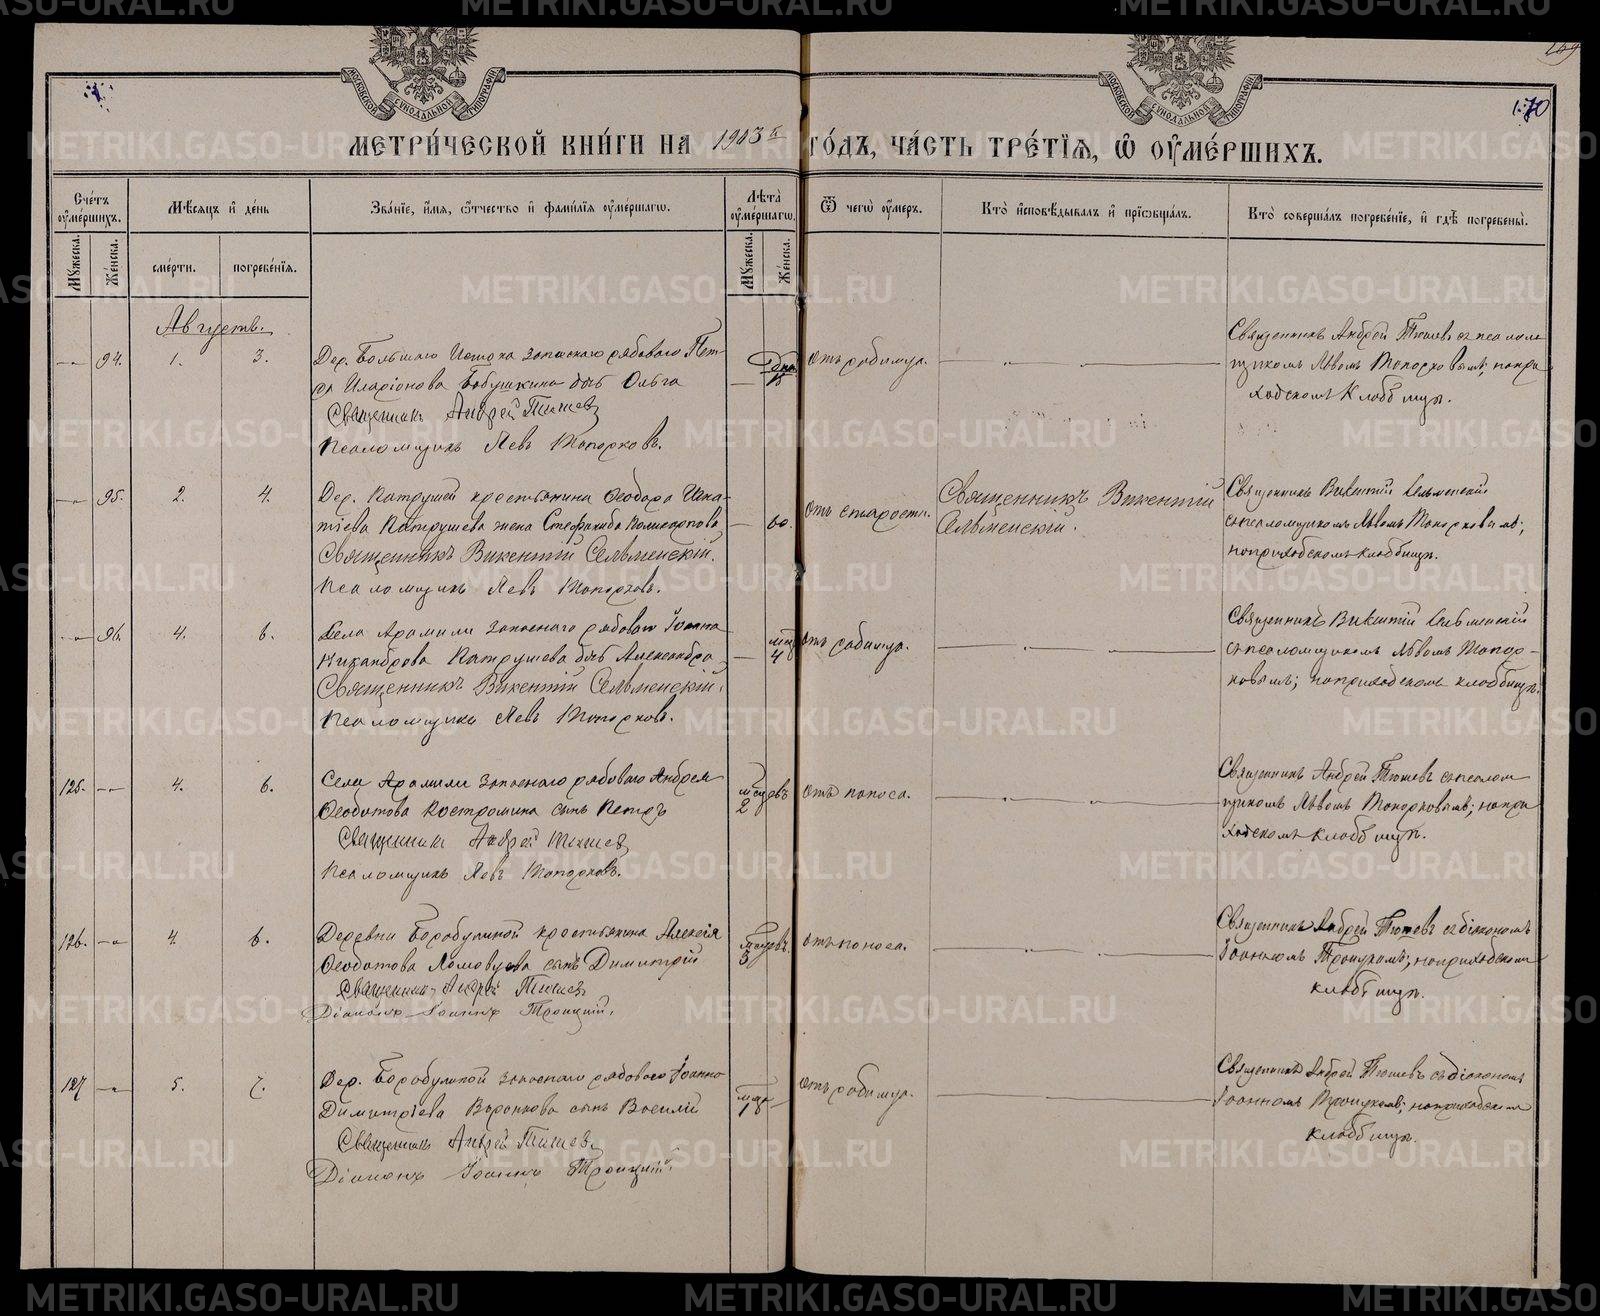 МЕТРИ́ЧЕСКОЙ КНИ́ГИ НА 1903 й ГО́ДЪ, ЧА́СТЬ ТРЕ́ТІѦ, Ѡ ОУМЕ́РШИХЪ.
МОСКОВСКОЙ СѴНОДАЛЬНОЙ ТИПОГРАФІИ
МОСКОВСКОЙ СѴНОДАЛЬНОЙ ТИПОГРАФІИ
170
Сче́тъ оумершихъ.
Мѣсяцъ и де́нь
Зва́ніе, и́мя, о́тчество и фами́лія оуме́ршагѡ.
Лѣта̀ оуме́ршагѡ.
Ѿ чегѡ̀ оу́меръ.
Кто̀ исповѣ́дывалъ и пріѡбща́лъ.
Кто̀ соверша́лъ погребе́ніе, и гдѣ̀ погребены̀.
Мꙋжеска.
Же́нска.
сме́рти.
погребе́нія.
Мꙋжеска.
Же́нска.
Августъ.
94. 1. 3.
Дер. Большаго Истока запаснаго рядоваго Пет-
ра Иларіонова Бабушкина дочь Ольга
Священникъ Андрей Тюшев
Псаломщикъ Левъ Топорковъ.
отъ родимца.
Священникъ Андрей Тюшевъ съ псалом-
щикомъ Львомъ Топорковымъ; на при
ходскомъ кладбищѣ.
95. 2. 4.
Дер. Патрушей крестьянина Ѳеодора Игна-
тіева Патрушева жена Стефанида Поликарпова
Священникъ Викентій Сельменскій.
Псаломщикъ Левъ Топорковъ.
60.
отъ старости.
Священникъ Викентій
Сельменскій.
Священникъ Викентій Сельменскій
съ псаломщикомъ Львомъ Топорковымъ;
на приходскомъ кладбищѣ.
96. 4. 6.
Села Арамили запаснаго рядоваго Іоанна
Никандрова Патрушева дочь Александра
Священникъ Викентій Сельменскій.
Псаломщикъ Левъ Топорковъ.
4
отъ родимца.
Священникъ Викентій Сельменскій
съ псаломщикомъ Львомъ Топор-
ковымъ; на приходскомъ кладбищѣ.
125. 4. 6.
Села Арамили запаснаго рядоваго Андрея
Ѳеодотова Костромина сынъ Петръ
Священникъ Андрей Тюшев
Псаломщикъ Левъ Топорковъ.
мѣсяцевъ 2
отъ поноса.
Священникъ Андрей Тюшевъ съ псалом
щикомъ Львомъ Топорковымъ; на при
ходскомъ кладбищѣ.
126. 4. 6.
Деревни Бородулиной крестьянина Алексія
Ѳеодотова Ломовцева сынъ Димитрій
Священникъ Андрей Тюшев
Діаконъ Іоаннъ Троицкій.
3
отъ поноса.
Священникъ Андрей Тюшевъ съ діакономъ
Іоанномъ Троицкимъ; на приходскомъ
кладбищѣ.
127 5. 7.
Дер. Бородулиной запаснаго рядоваго Іоанна
Димитріева Воронкова сынъ Василій
Священникъ Андрей Тюшев
Діаконъ Іоаннъ Троицкій.
1
отъ родимца.
Священникъ Андрей Тюшевъ съ діакономъ
Іоанномъ Троицкимъ; на приходскомъ
кладбищѣ.
METRIKI.GASO-URAL.RU